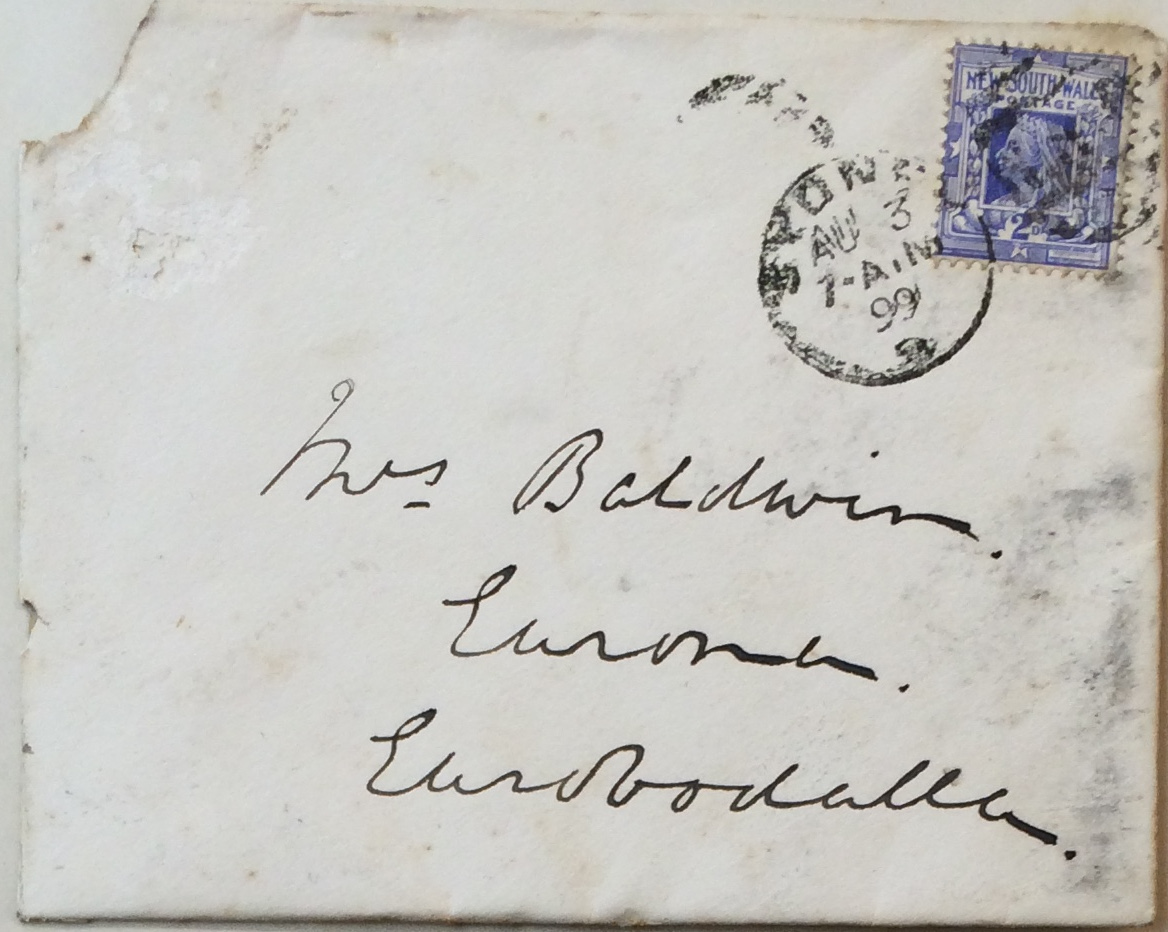 NEW SOUTH WALES
POSTAGE
2D
SYDNEY
AU 3
7-A.M
99
2
Mrs Baldwin.
Eurona.
Eurobodalla.